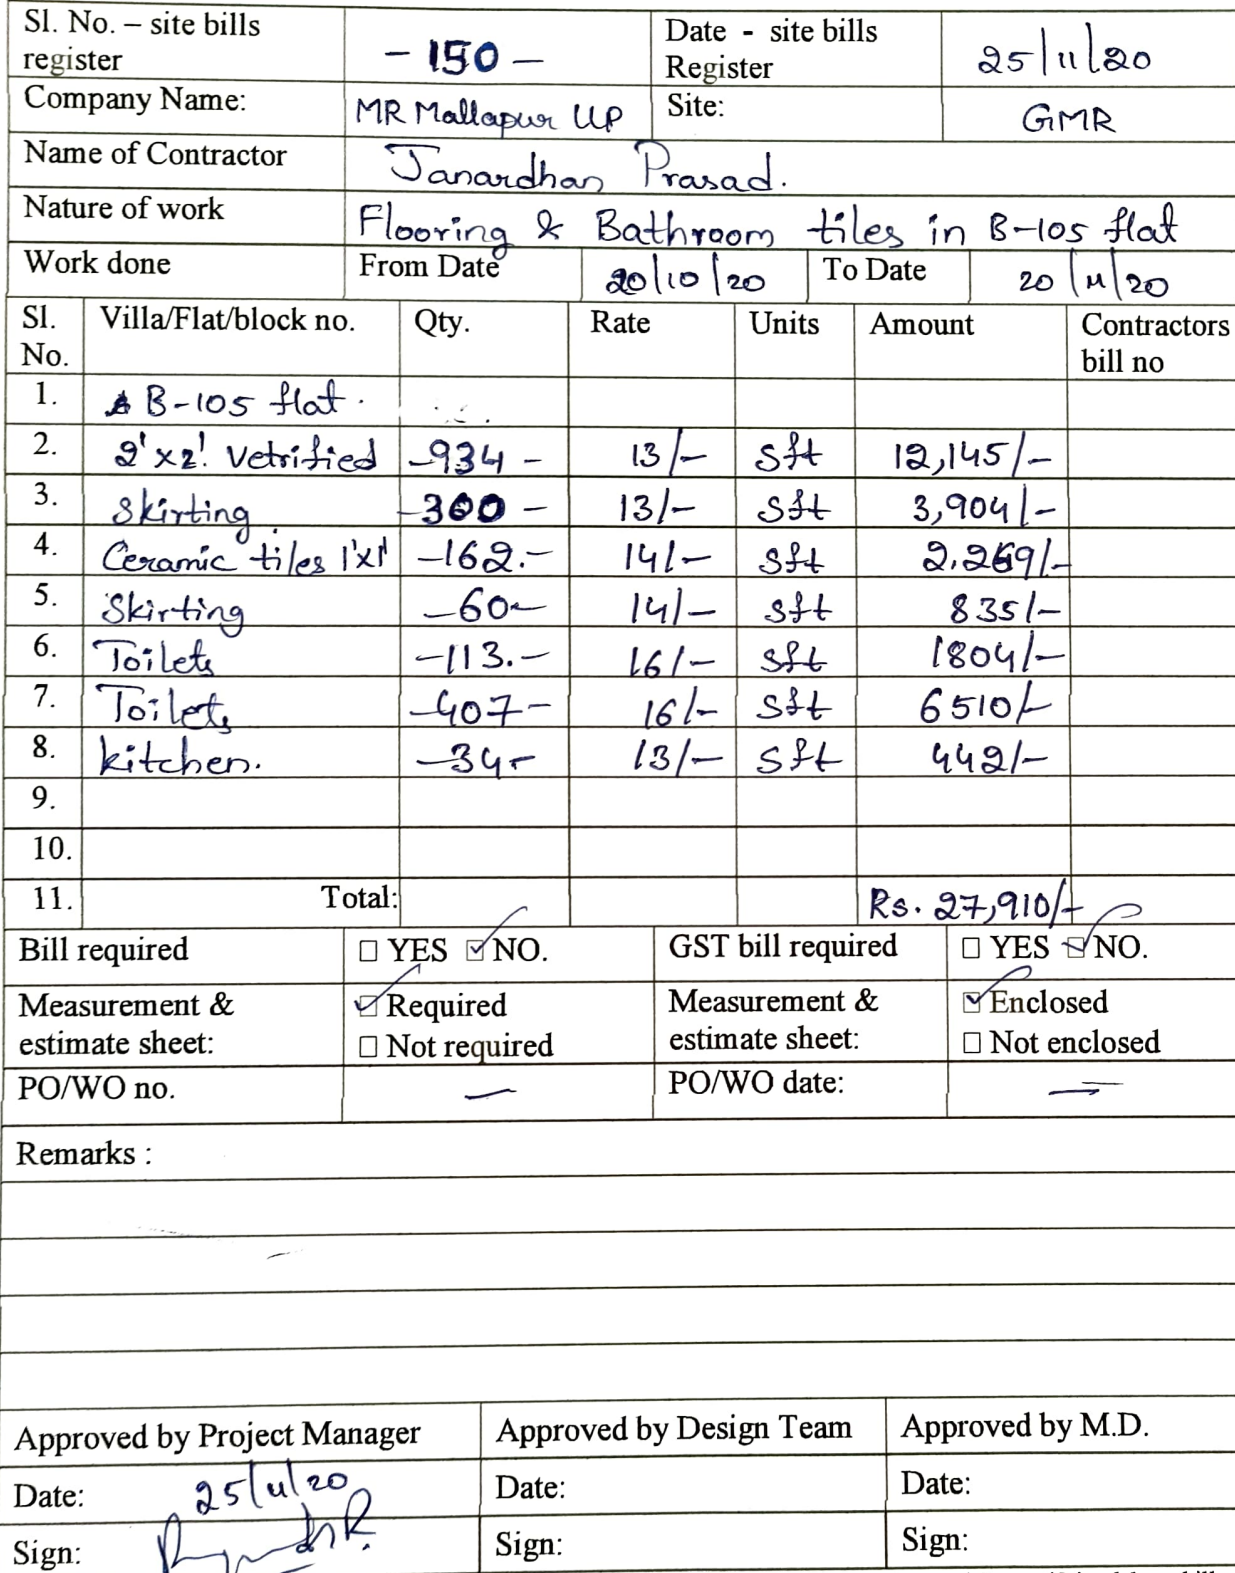 Sl. No. – site bills register - 150 - Date - site bills Register 25/11/20
Company Name: MR Mallapur LLP Site: GMR
Name of Contractor Janardhan Prasad.
Nature of work Flooring & Bathroom tiles in B-105 flat
Work done From Date 20/10/20 To Date 20/11/20
Sl. No. Villa/Flat/block no. Qty. Rate Units Amount Contractors bill no
1. B-105 flat.
2. 2'x2'. Vetrified -934- 13/- sft 12,145/-
3. Skirting -300- 13/- sft 3,904/-
4. Ceramic tiles 1'x1' -162.- 14/- sft 2,269/-
5. Skirting -60- 14/- sft 835/-
6. Toilets -113.- 16/- sft 1804/-
7. Toilets -407- 16/- sft 6510/-
8. kitchen. -34- 13/- sft 442/-
9.
10.
11. Total: Rs. 27,910/-
Bill required ☐ YES ☑ NO. GST bill required ☐ YES ☑ NO.
Measurement & estimate sheet: ☑ Required ☐ Not required Measurement & estimate sheet: ☑ Enclosed ☐ Not enclosed
PO/WO no. — PO/WO date: —
Remarks :
Approved by Project Manager Approved by Design Team Approved by M.D.
Date: 25/11/20 Date: Date:
Sign: Sign: Sign: